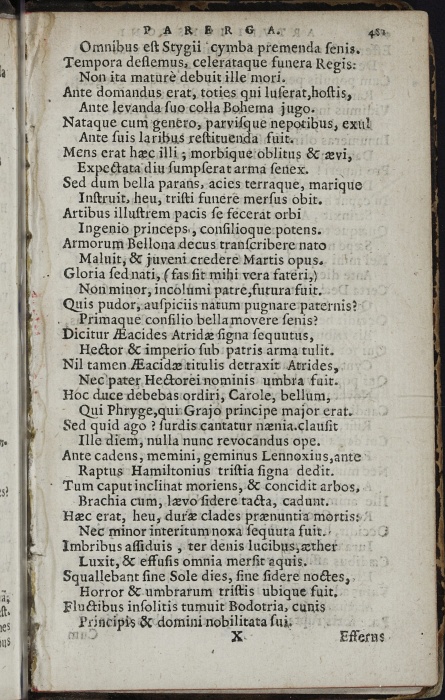 PARERGA. 481
Omnibus est Stygii cymba premenda senis.
Tempora deflemus, celerataque funera Regis:
Non ita mature debuit ille mori.
Ante domandus erat, toties qui luserat, hostis,
Ante levanda suo colla Bohema jugo.
Nataque cum genero, parvisque nepotibus, exul
Ante suis laribus restituenda fuit.
Mens erat hæc illi; morbique oblitus & ævi,
Expectata diu sumpserat arma senex.
Sed dum bella parans, acies terraque, marique
Instruit, heu, tristi funere mersus obit.
Artibus illustrem pacis se fecerat orbi
Ingenio princeps, consilioque potens.
Armorum Bellona decus transcribere nato
Maluit, & juveni credere Martis opus.
Gloria sed nati, (fas sit mihi vera fateri,)
Non minor, incolumi patre, futura fuit.
Quis pudor, auspiciis natum pugnare paternis?
Primaque consilio bella movere senis?
Dicitur Æacides Atridæ signa sequutus,
Hector & imperio sub patris arma tulit.
Nil tamen Æacidæ titulis detraxit Atrides,
Nec pater Hectorei nominis umbra fuit.
Hoc duce debebas ordiri, Carole, bellum,
Qui Phryge, qui Grajo principe major erat.
Sed quid ago? surdis cantatur nænia. clausit
Ille diem, nulla nunc revocandus ope.
Ante cadens, memini, geminus Lennoxius, ante
Raptus Hamiltonius tristia signa dedit.
Tum caput inclinat moriens, & concidit arbos,
Brachia cum, lævo sidere tacta, cadunt.
Hæc erat, heu, duræ clades prænuntia mortis:
Nec minor interitum noxa sequuta fuit.
Imbribus assiduis, ter denis lucibus, æther
Luxit, & effusis omnia mersit aquis.
Squallebant sine Sole dies, sine sidere noctes,
Horror & umbrarum tristis ubique fuit.
Fluctibus insolitis tumuit Bodotria, cunis
Principis & domini nobilitata sui.
X Efferus